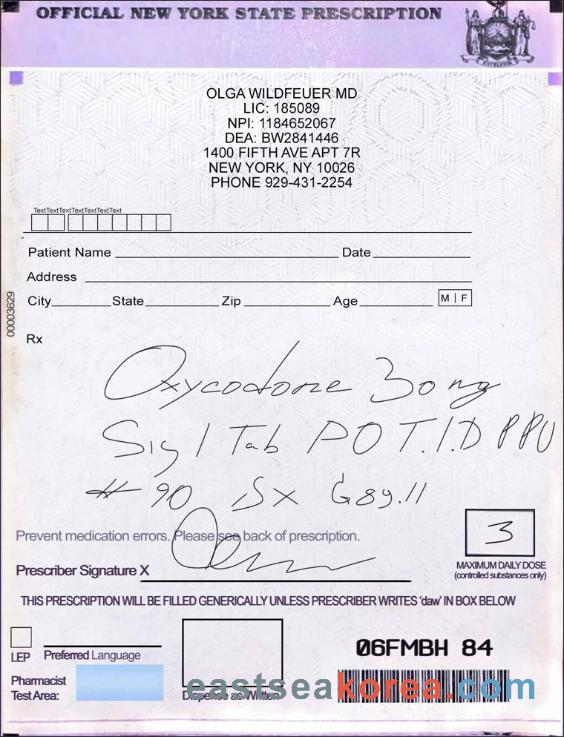 OFFICIAL NEW YORK STATE PRESCRIPTION
EXCELSIOR
OLGA WILDFEUER MD
LIC: 185089
NPI: 1184652067
DEA: BW2841446
1400 FIFTH AVE APT 7R
NEW YORK, NY 10026
PHONE 929-431-2254
TextTextTextTextTextTextText
Patient Name Date
Address
City State Zip Age M | F
00003629
Rx
Oxycodone 30 mg
Sig 1 Tab PO T.I.D
# 90 G89.11
3
Prevent medication errors. Please see back of prescription.
Prescriber Signature X
MAXIMUM DAILY DOSE
(controlled substances only)
THIS PRESCRIPTION WILL BE FILLED GENERICALLY UNLESS PRESCRIBER WRITES 'daw' IN BOX BELOW
LEP Preferred Language
06FMBH 84
Pharmacist
Test Area:
Dispense as Written
eastseakorea.com